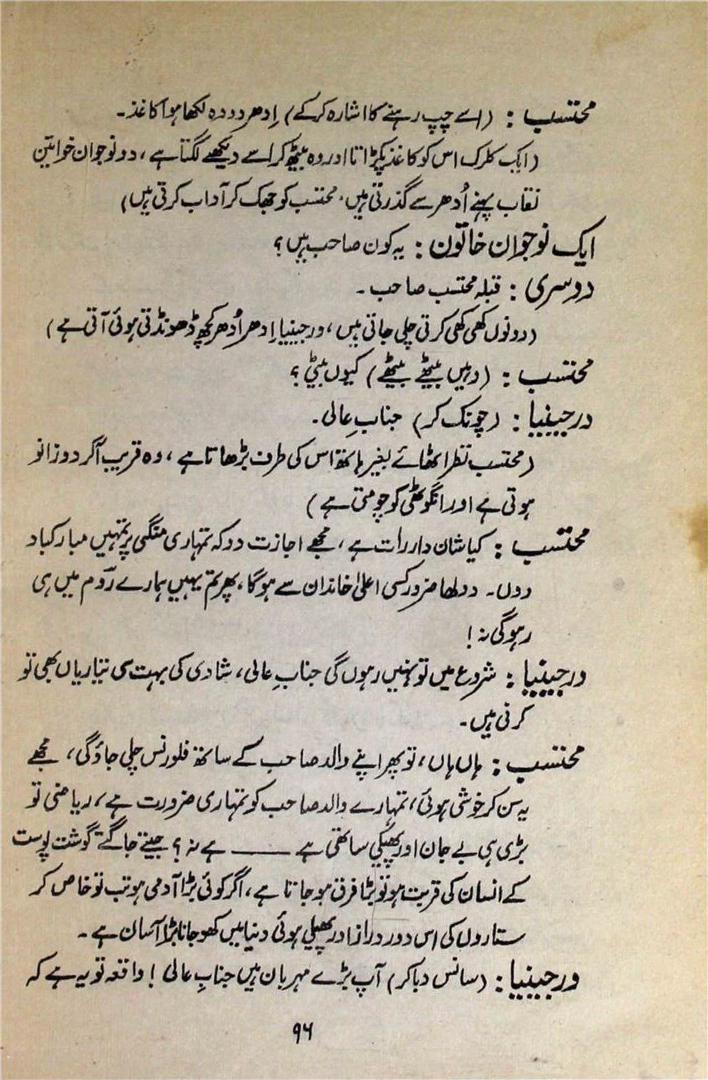 محتسب : (اسے چپ رہنے کا اشارہ کرکے) اِدھر دو وہ لکھا ہوا کاغذ۔
(ایک کلرک اس کو کاغذ پکڑاتا اور وہ بیٹھ کر اسے دیکھنے لگتا ہے، دو نوجوان خواتین
نقاب پہنے اُدھر سے گذرتی ہیں۔ محتسب کو جھک کر آداب کرتی ہیں)
ایک نوجوان خاتون : یہ کون صاحب ہیں؟
دوسری : قبلہ محتسب صاحب ۔
(دونوں کھی کھی کرتی چلی جاتی ہیں، ورجینیا اِدھر اُدھر کچھ ڈھونڈتی ہوئی آتی ہے)
محتسب : (وہیں بیٹھے بیٹھے) کیوں بیٹی؟
ورجینیا : (چونک کر) جنابِ عالی۔
(محتسب نظر اٹھائے بغیر ہاتھ اس کی طرف بڑھاتا ہے، وہ قریب آکر دوزانو
ہوتی ہے اور انگوٹھی کو چومتی ہے)
محتسب : کیا شان دار رات ہے، مجھے اجازت دو کہ تمہاری منگنی پر تمہیں مبارکباد
دوں۔ دولھا ضرور کسی اعلیٰ خاندان سے ہوگا، پھر تم یہیں ہمارے روم میں ہی
رہوگی نہ!
ورجینیا : شروع میں تو نہیں رہوں گی جنابِ عالی، شادی کی بہت سی تیاریاں بھی تو
کرنی ہیں۔
محتسب : ہاں ہاں، تو پھر اپنے والد صاحب کے ساتھ فلورنس چلی جاؤگی، مجھے
یہ سن کر خوشی ہوئی، تمہارے والد صاحب کو تمہاری ضرورت ہے، ریاضی تو
بڑی ہی بے جان اور پھیکی ساتھی ہے ــــــــ ہے نہ؟ جیتے جاگے گوشت پوست
کے انسان کی قربت ہو تو بڑا فرق ہو جاتا ہے، اگر کوئی بڑا آدمی ہو تب تو خاص کر
ستاروں کی اس دور دراز اور پھیلی ہوئی دنیا میں کھو جانا بڑا آسان ہے۔
ورجینیا : (سانس دبا کر) آپ بڑے مہربان ہیں جنابِ عالی! واقعہ تو یہ ہے کہ
۹۶